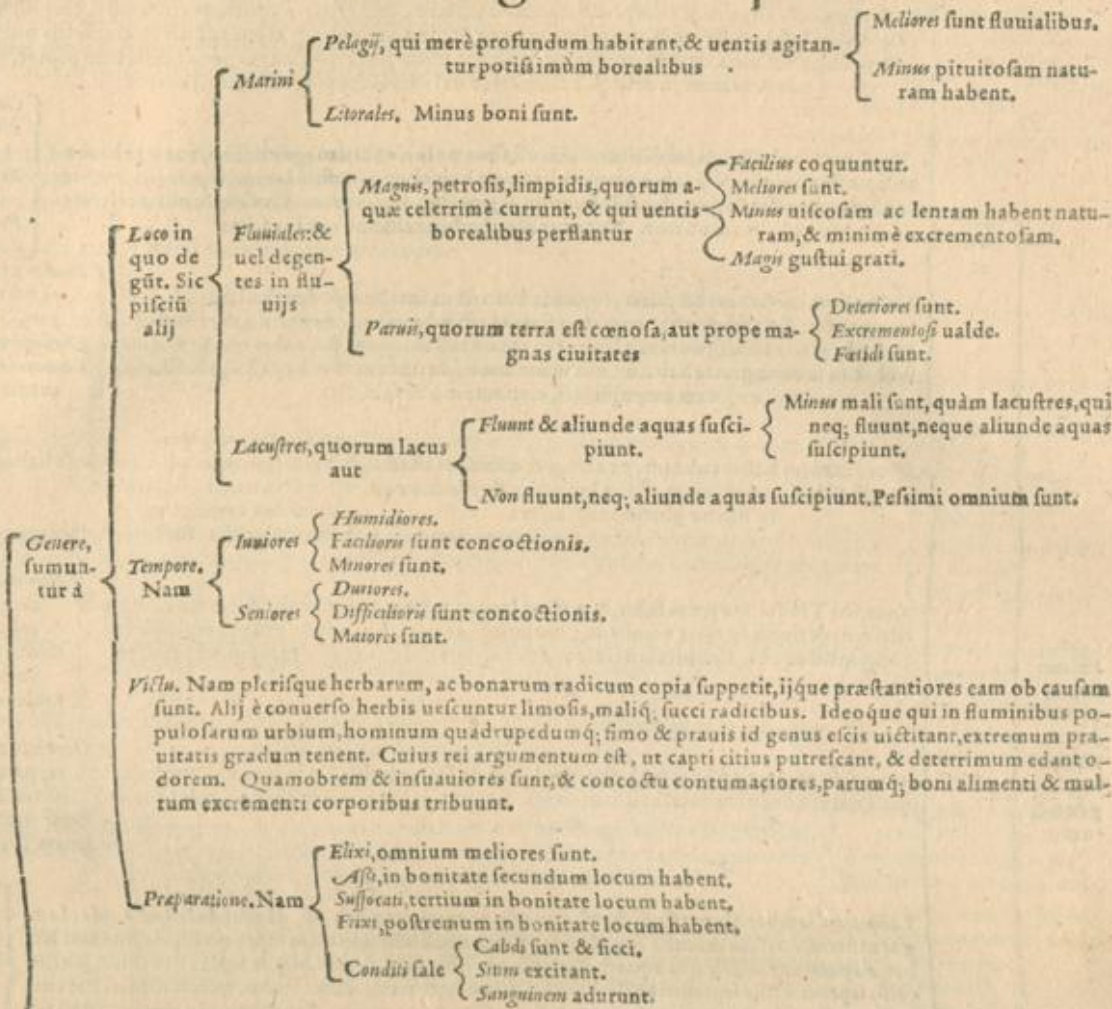 Meliores sunt fluuialibus.
Pelagij, qui merè profundum habitant, & uentis agitan-
tur potissimùm borealibus
Minus pituitosam natu-
ram habent.
Marini
Litorales. Minus boni sunt.
Loco in
quo de
gūt. Sic
pisciū
alij
Fluuiales: &
uel degen-
tes in flu-
uijs
Magnis, petrosis, limpidis, quorum a-
quæ celerrimè currunt, & qui uentis
borealibus perflantur
Facilius coquuntur.
Meliores sunt.
Minus uiscosam ac lentam habent natu-
ram, & minimè excrementosam.
Magis gustui grati.
Paruis, quorum terra est cœnosa, aut prope ma-
gnas ciuitates
Deteriores sunt.
Excrementosi ualde.
Fœtidi sunt.
Lacustres, quorum lacus
aut
Fluunt & aliunde aquas susci-
piunt.
Minus mali sunt, quàm lacustres, qui
neq; fluunt, neque aliunde aquas
suscipiunt.
Non fluunt, neq; aliunde aquas suscipiunt. Pessimi omnium sunt.
Genere,
sumun-
tur à
Tempore.
Nam
Iuniores
Humidiores.
Facilioris sunt concoctionis.
Minores sunt.
Seniores
Duriores.
Difficilioris sunt concoctionis.
Maiores sunt.
Victu. Nam plerisque herbarum, ac bonarum radicum copia suppetit, ijque præstantiores eam ob causam
sunt. Alij è conuerso herbis uescuntur limosis, maliq; succi radicibus. Ideoque qui in fluminibus po-
pulosarum urbium, hominum quadrupedumq; fimo & prauis id genus escis uictitant, extremum pra-
uitatis gradum tenent. Cuius rei argumentum est, ut capti citius putrescant, & deterrimum edant o-
dorem. Quamobrem & insuauiores sunt, & concoctu contumaciores, parumq; boni alimenti & mul-
tum excrementi corporibus tribuunt.
Præparatione. Nam
Elixi, omnium meliores sunt.
Assi, in bonitate secundum locum habent.
Suffocati, tertium in bonitate locum habent.
Frixi, postremum in bonitate locum habent.
Conditi sale
Calidi sunt & sicci.
Sitim excitant.
Sanguinem adurunt.